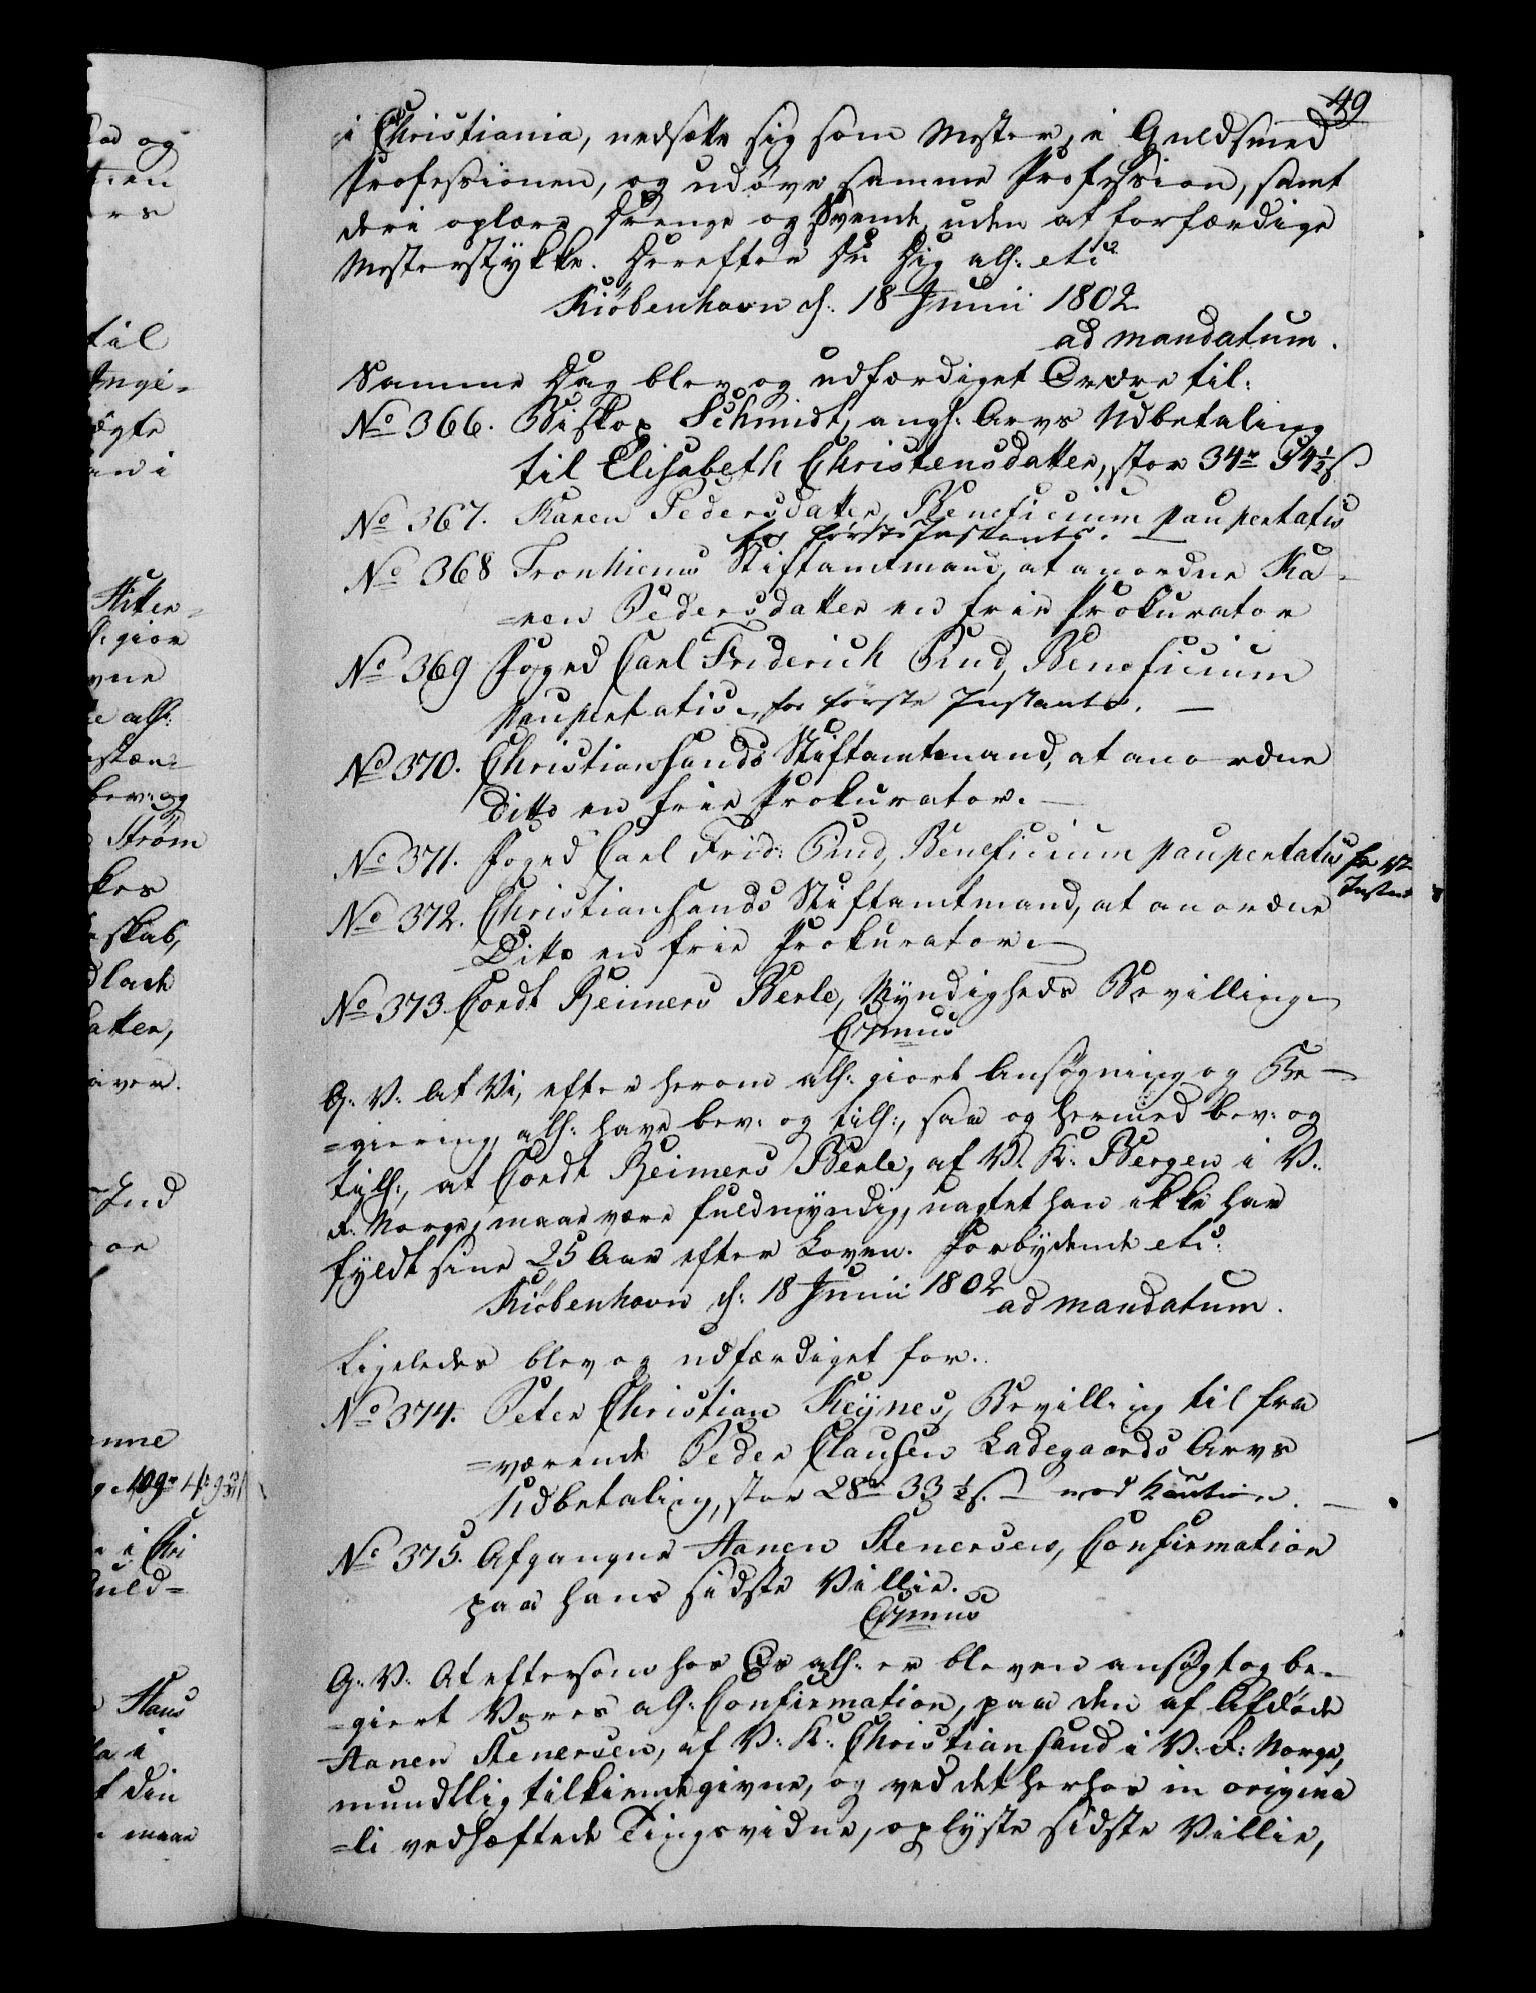 49
i Christiania, nedsætte sig som Mester, i Guldsmed
Professionen, og udøve samme Profession, samt
deri oplære Drenge og Svende, uden at forfærdige
Mesterstykke. Derefter Du Dig alh: etc
Kiöbenhavn d: 18 Junii 1802
ad mandatum.
Samme Dag blev og udfærdiget Ordre til:
No 366. Biskop Schmidt, angl: Arvs Udbetaling
til Elisabeth Christensdatter, stor 34 rd 54½ s.
No 367. Karen Pedersdatter, Beneficium paupertatis
for første Instants.
No 368 Tronhiems Stiftamtmand, at anordne Ka-
=ren Pedersdatter en frie Prokurator
No 369 Foged Carl Friderich Oind, Beneficium
paupertatis, for første Instants. —
No 370. Christiansands Stiftamtmand, at anordne
Ditto en frie Prokurator. —
No 371. Foged Carl Frid: Oind, Beneficium paupertatis for
Instants
No 372. Christiansands Stiftamtmand, at anordne
Ditto en frie Prokurator. —
No 373 Cordt Reimers Berle, Myndigheds Bevilling
G: V: At Vi, efter herom alh: giort Ansøgning og Be-
=giering, alh: have bev: og tilh:, saa og hermed bev: og
tilh:, at Cordt Reimers Berle, af V: K: Bergen i V:
R: Norge, maae være fuldmyndig, uagtet han ikke har
fyldt sine 25 Aar efter Loven. Forbydende etc:
Kiöbenhavn d: 18 Junii 1802
ad mandatum.
Ligeledes blev og udfærdiget for:
No 374. Peter Christian Keynes, Bevilling til fra
=værende Peder Clausen Ladegaards Arvs
Udbetaling, stor 28 rd 33½ s. — mod Kaution. —
No 375. Afgangne Aanen Stenersens, Confirmation
paa hans sidste Villie.
G: V: At eftersom hos Os alh: er bleven ansøgt og be-
=giert Vores alh: Confirmation, paa den af Afdøde
Aanen Stenersen, af V: K: Christiansand i V: R: Norge,
mundtlig tilkiendegivne, og ved det herhos in origina
=li vedhæftede Tingsvidne, oplyste sidste Villie,